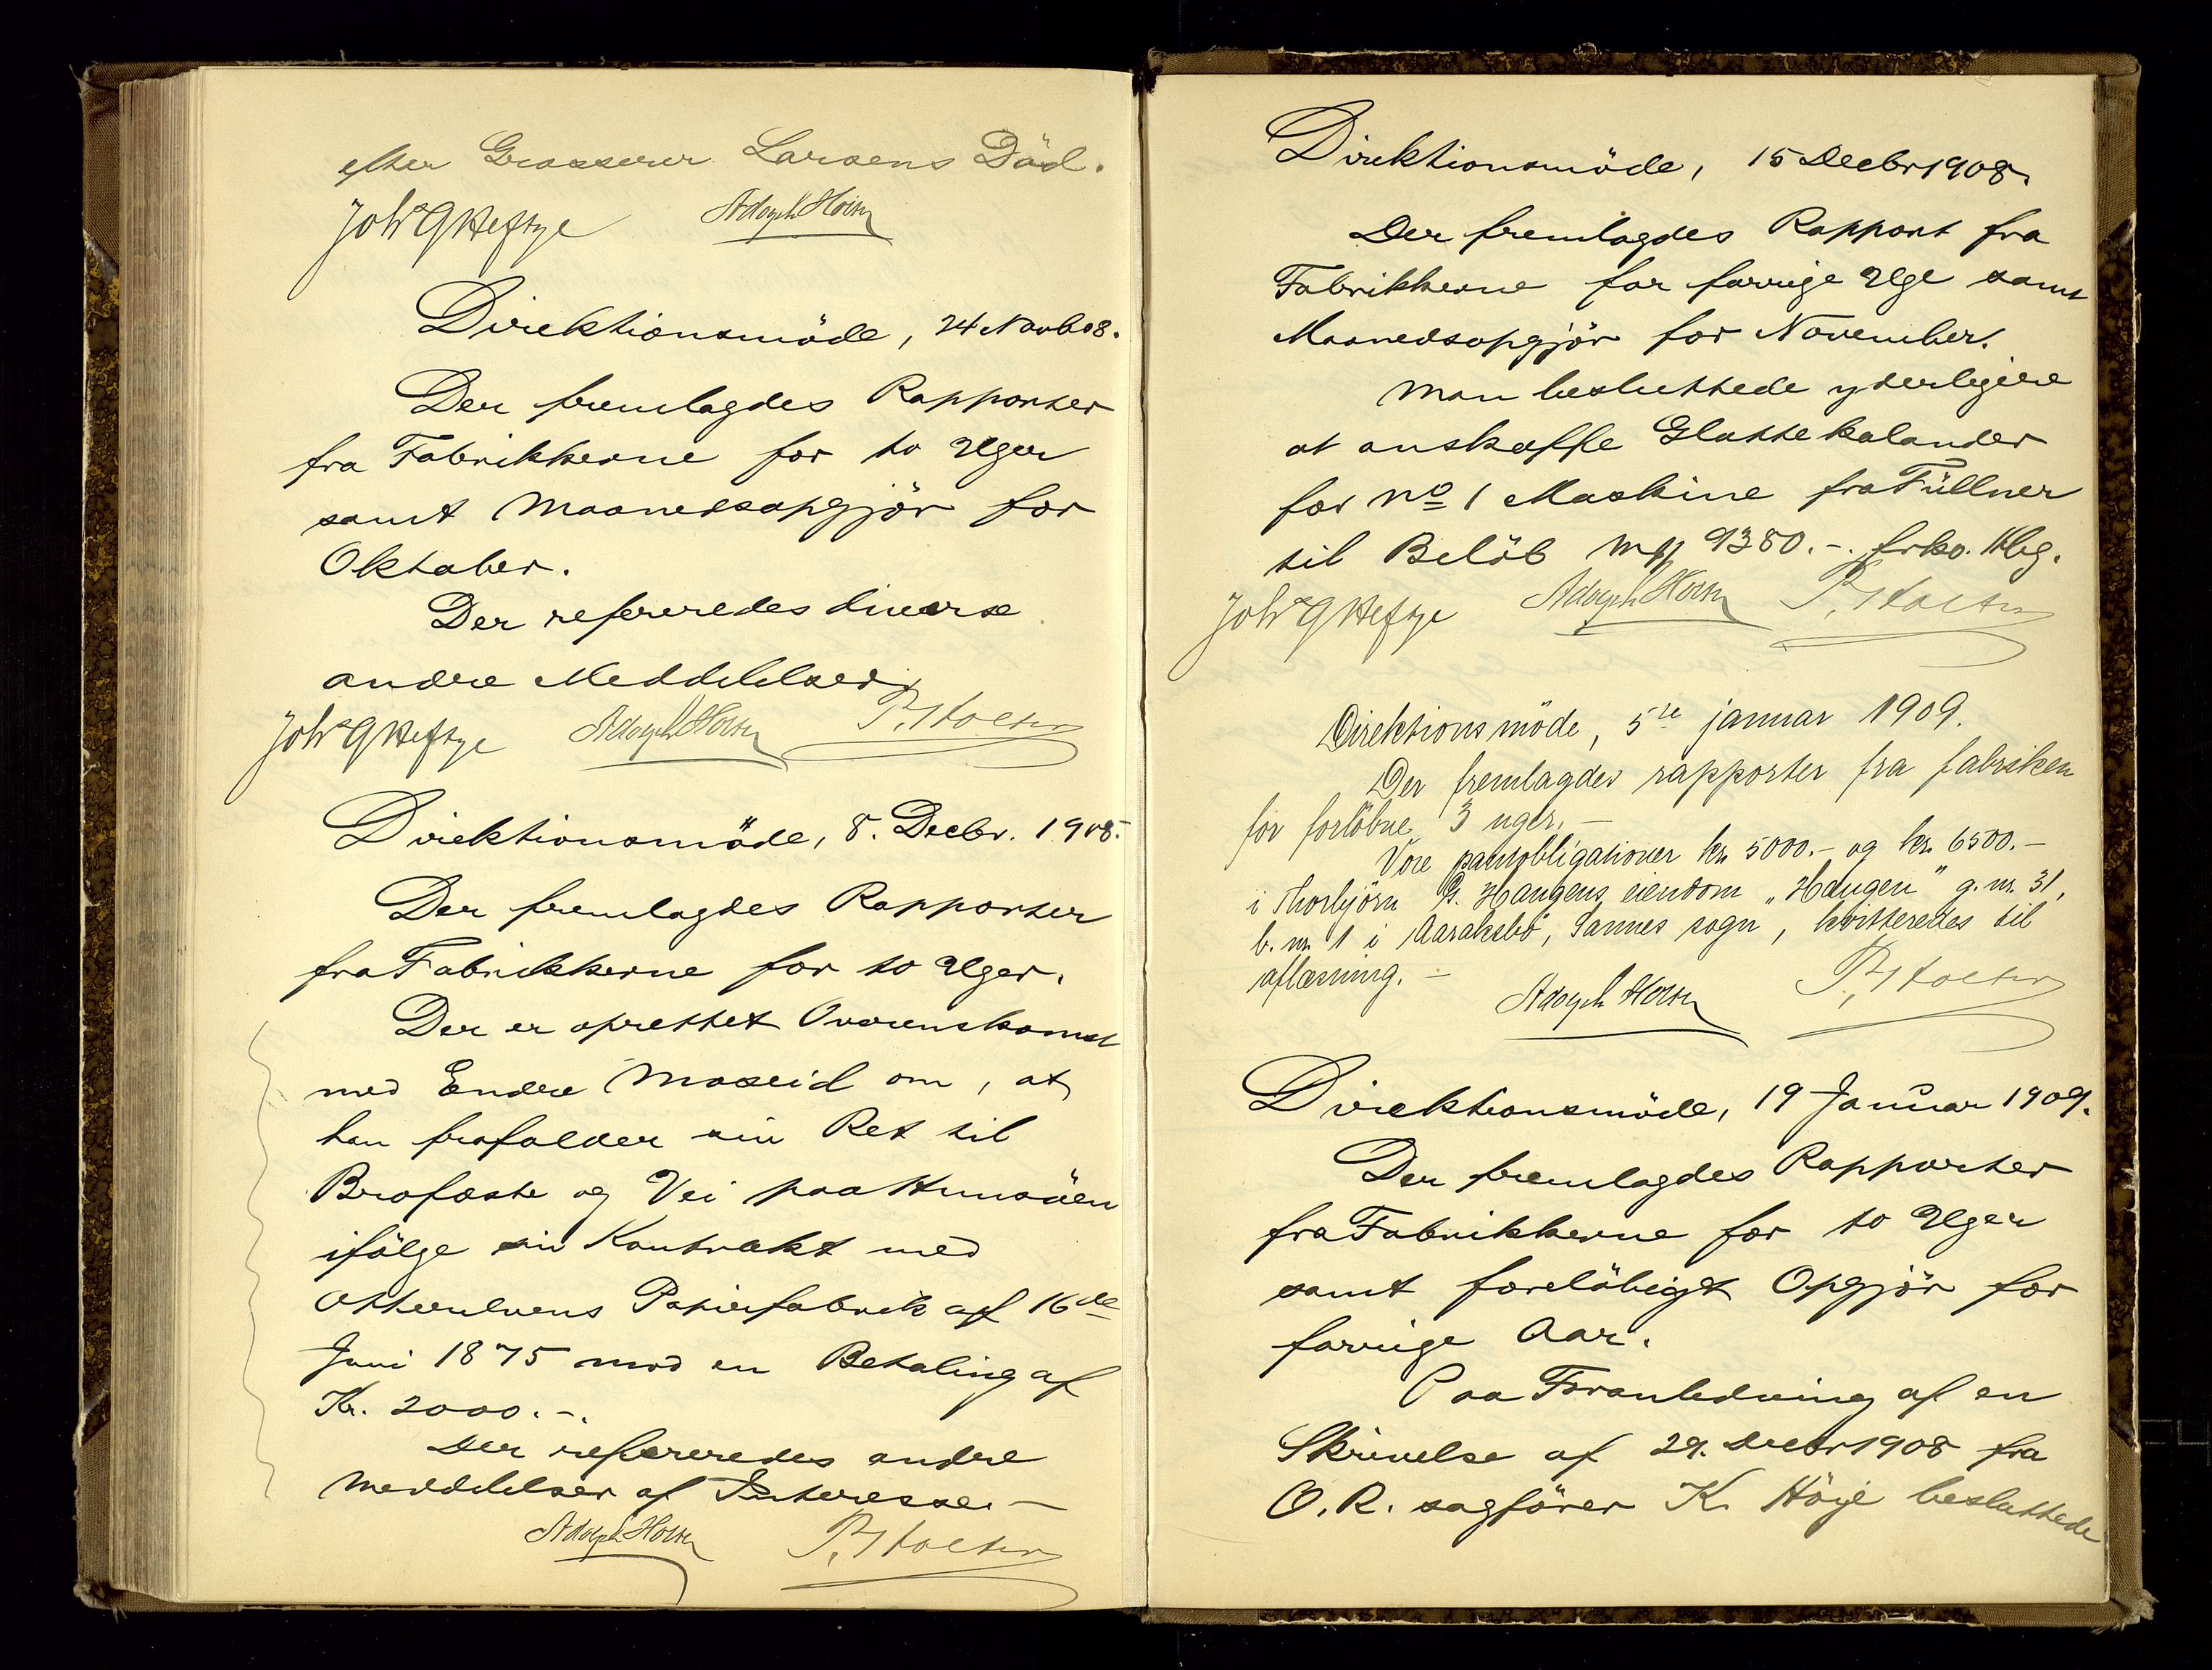 efter Grosserer Larsens Död.
Johs G Heftye Adolph Holth
Direktionsmöde, 24 Novb 08.
Der fremlagdes Rapporter
fra Fabrikkerne for to Uger
samt Maanedsopgjör for
Oktober.
Der refereredes diverse
andre Meddelelser.
Johs G Heftye Adolph Holth P. Holter
Direktionsmöde, 8. Decbr. 1908.
Der fremlagdes Rapporter
fra Fabrikkerne for to Uger.
Der er oprettet Overenskomst
med Endre Moseid om, at
han frafalder sin Ret til
Brofæste og Vei paa Hunsöen
ifölge sin Kontrakt med
Otterelvens Papirfabrik af 16de
Juni 1875 mod en Betaling af
Kr. 2000.-.
Der refereredes andre
Meddelelser af Interesse. —
Adolph Holth P. Holter
Direktionsmöde, 15 Decbr 1908.
Der fremlagdes Rapport fra
Fabrikkerne for forrige Uge samt
Maanedsopgjör for November.
Man besluttede yderligere
at anskaffe Glattekalander
for No 1 Maskine fra Füllner
til Belöb Mk 9380.-. frko. Hbg.
Johs G Heftye Adolph Holth P. Holter
Direktionsmöde, 5te januar 1909.
Der fremlagdes rapporter fra fabriken
for forlöbne 3 uger. —
Vore pantobligationer kr. 5000.- og kr. 6500.-
i Thorbjörn G. Haugens eiendom „Haugen" g. nr. 31,
b. nr. 1 i Aaraksbö, Sannes sogn, kvitteredes til
aflæsning. —
Adolph Holth P. Holter
Direktionsmöde, 19 Januar 1909.
Der fremlagdes Rapporter
fra Fabrikkerne for to Uger
samt forelöbigt Opgjör for
forrige Aar.
Paa Foranledning af en
Skrivelse af 29. Decbr 1908 fra
O. R. sagförer K. Höye besluttede